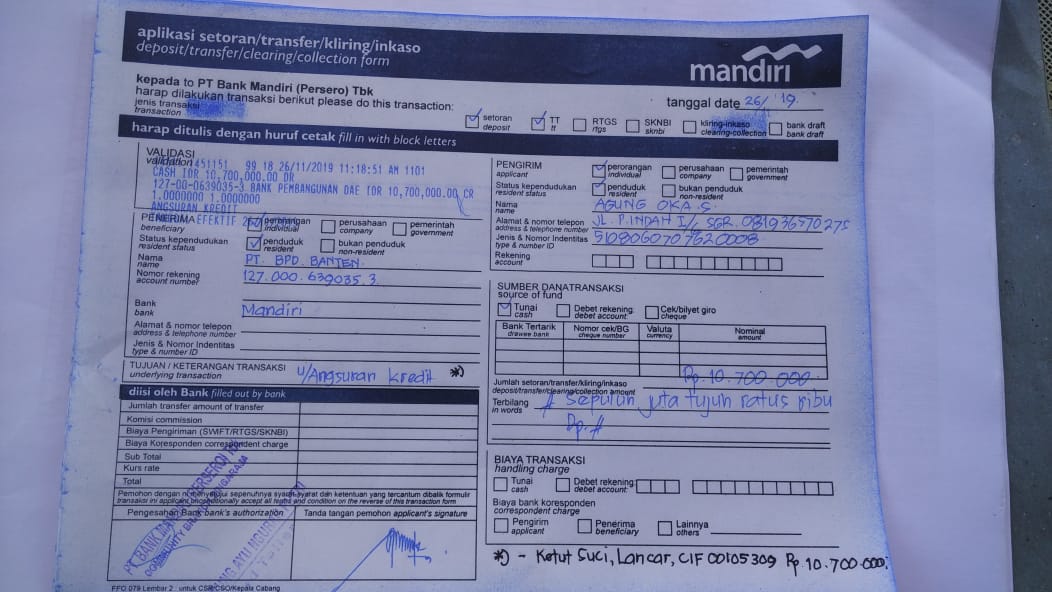 aplikasi setoran/transfer/kliring/inkaso
deposit/transfer/clearing/collection form
mandiri
kepada to PT Bank Mandiri (Persero) Tbk
harap dilakukan transaksi berikut please do this transaction:
tanggal date 26/ '19.
jenis transaksi
transaction
setoran
deposit
TT
tt
RTGS
rtgs
SKNBI
sknbi
kliring-inkaso
clearing-collection
bank draft
bank draft
harap ditulis dengan huruf cetak fill in with block letters
VALIDASI
validation
451151 99 18 26/11/2019 11:18:51 AM 1101
CASH IDR 10,700,000.00 DR
127-00-0639035-3 BANK PEMBANGUNAN DAE IDR 10,700,000.00 CR
1.0000000 1.0000000
ANGSURAN KREDIT
EFEKTIF
PENERIMA
beneficiary
perorangan
individual
perusahaan
company
pemerintah
government
Status kependudukan
resident status
penduduk
resident
bukan penduduk
non-resident
Nama
name
PT. BPD. BANTEN
Nomor rekening
account number
127.000.639035.3
Bank
bank
Mandiri
Alamat & nomor telepon
address & telephone number
Jenis & Nomor Indentitas
type & number ID
TUJUAN / KETERANGAN TRANSAKSI
underlying transaction
u/Angsuran kredit *)
diisi oleh Bank filled out by bank
Jumlah transfer amount of transfer
Komisi commission
Biaya Pengiriman (SWIFT/RTGS/SKNBI)
Biaya Koresponden correspondent charge
Sub Total
Kurs rate
Total
Pemohon dengan ini menyetujui sepenuhnya syarat-syarat dan ketentuan yang tercantum dibalik formulir
transaksi ini applicant unconditionally accept all terms and condition on the reverse of this transaction form
Pengesahan Bank bank's authorization
Tanda tangan pemohon applicant's signature
PT BANK MANDIRI (PERSERO) Tbk
FFO 079 Lembar 2 : untuk CSR/CSO/Kepala Cabang
PENGIRIM
applicant
perorangan
individual
perusahaan
company
pemerintah
government
Status kependudukan
resident status
penduduk
resident
bukan penduduk
non-resident
Nama
name
AGUNG OKA.S.
Alamat & nomor telepon
address & telephone number
JL. P.INDAH I/ SGR. 081936570275
Jenis & Nomor Indentitas
type & number ID
5108060707620008
Rekening
account
SUMBER DANATRANSAKSI
source of fund
Tunai
cash
Debet rekening
debet account:
Cek/bilyet giro
cheque
Bank Tertarik
drawee bank
Nomor cek/BG
cheque number
Valuta
currency
Nominal
amount
Jumlah setoran/transfer/kliring/inkaso
deposit/transfer/clearing/collection amount
Rp. 10.700.000.
Terbilang
in words
# Sepuluh juta tujuh ratus ribu
Rp. #
BIAYA TRANSAKSI
handling charge
Tunai
cash
Debet rekening
debet account:
Biaya bank koresponden
correspondent charge
Pengirim
applicant
Penerima
beneficiary
Lainnya
others
*) - Ketut Suci, Lancar, CIF 00105309 Rp. 10.700.000.